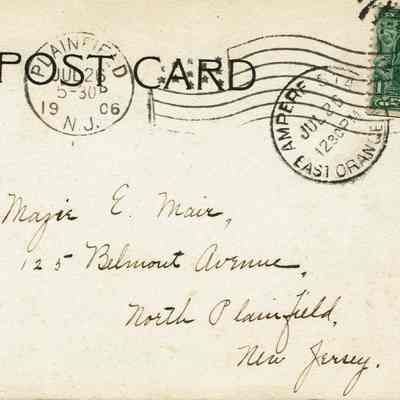 POST CARD
PLAINFIELD
JUL 26
5-30P
19 06
N.J.
AMPERE STA
JUL 25
12 30 PM
EAST ORANGE
Mazie E. Mair,
125 Belmont Avenue,
North Plainfield,
New Jersey.